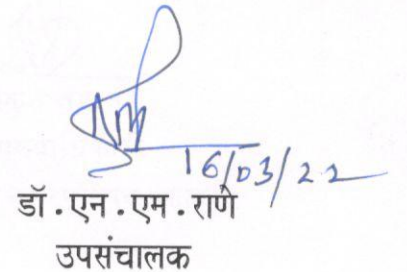 16/03/22
डॉ . एन . एम . राणे
उपसंचालक